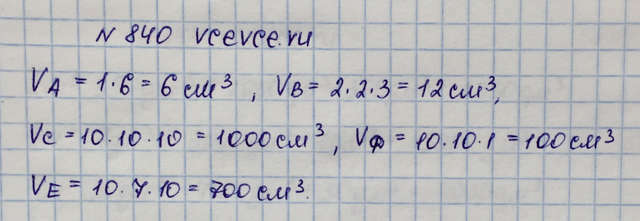 N 840 vcevce.ru
V_A = 1·6 = 6 см³, V_B = 2·2·3 = 12 см³,
V_C = 10·10·10 = 1000 см³, V_Ф = 10·10·1 = 100 см³
V_E = 10·7·10 = 700 см³.